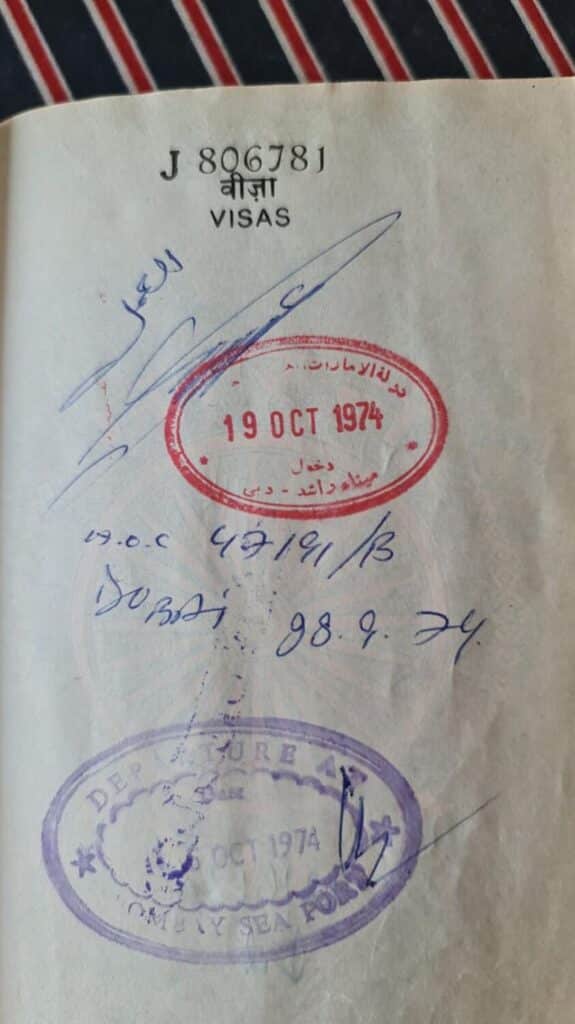 J 806781
वीज़ा
VISAS
العمل
دولة الامارات
19 OCT 1974
دخول
ميناء راشد - دبي
47191/B
DUBAI 28.9.74.
DEPARTURE AT
Date
OCT 1974
BOMBAY SEA PORT